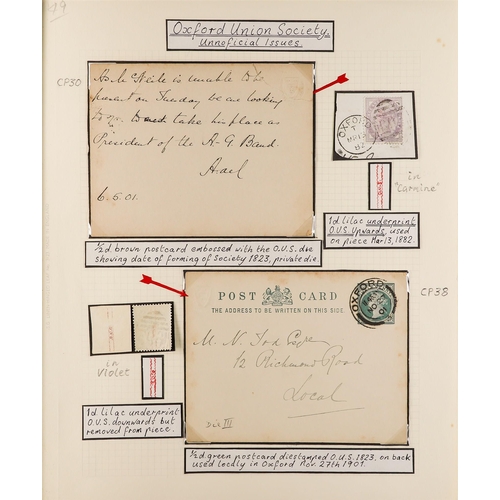 19
Oxford Union Society.
Unnoficial Issues
CP30
As Mr Neile is unable to be
present on Tuesday we are looking
to you to take his place as
President of the A-G Band.
6.5.01.
OXFORD
MR 13
82
in
"Carmine"
1d lilac underprint
O.U.S. Upwards, used
on piece Mar 13, 1882.
1/2d brown postcard embossed with the O.U.S. die
showing date of forming of Society 1823, private die.
CP38
POST CARD
THE ADDRESS TO BE WRITTEN ON THIS SIDE.
OXFORD
NO 27
01
M. N. Tod Esqre
12 Richmond Road
Local
Die III
in
Violet
1d lilac underprint
O.U.S. downwards but
removed from piece.
1/2d. green postcard diestamped O.U.S. 1823, on back
used locally in Oxford Nov. 27th 1901.